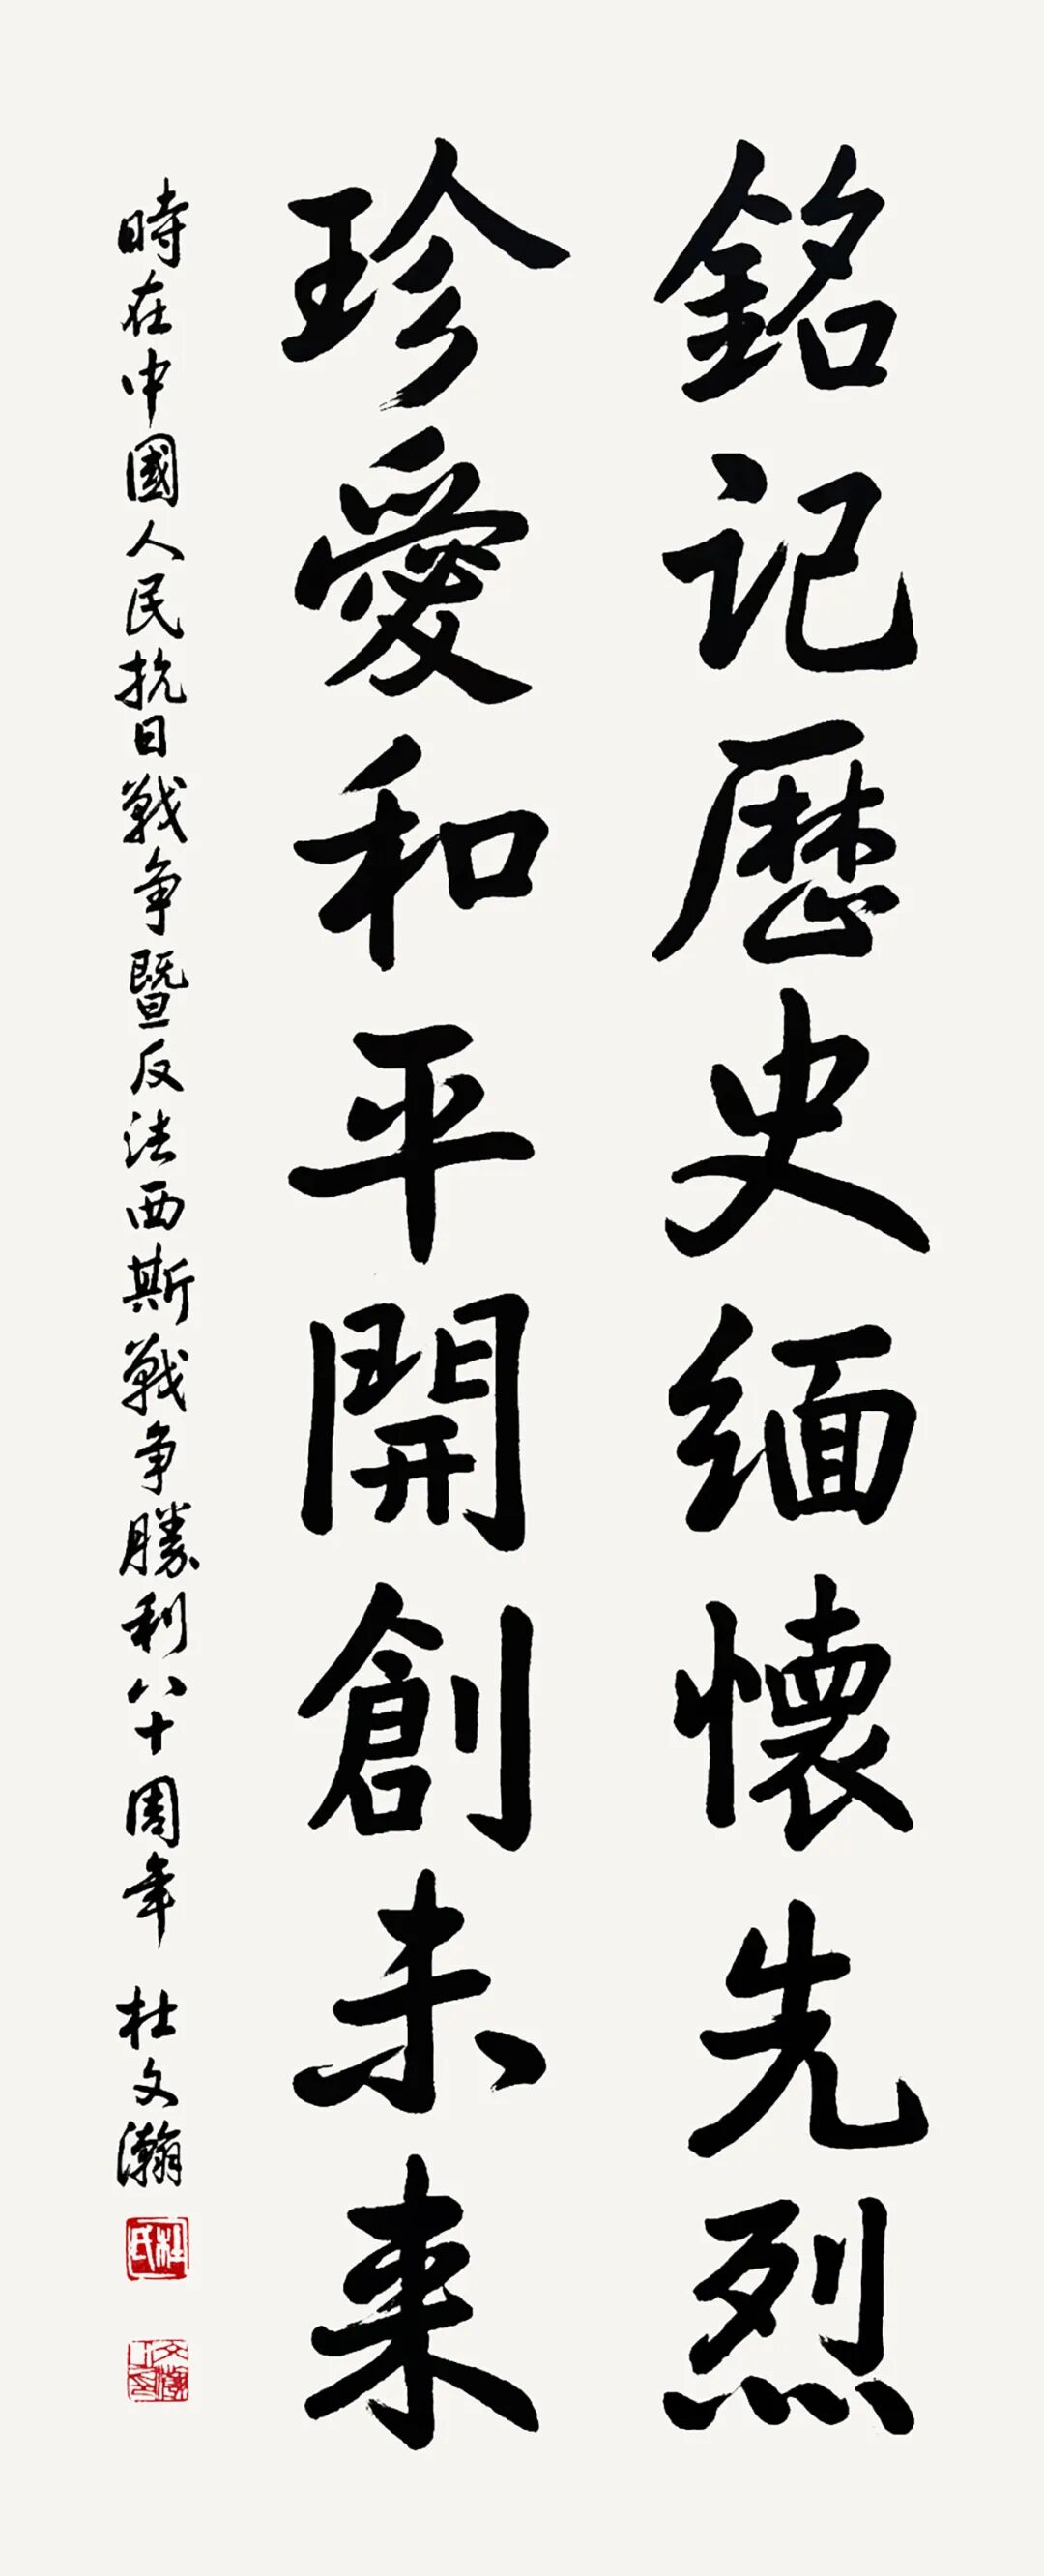 銘记歷史缅懷先烈
珍愛和平開創未来
時在中國人民抗日戰争暨反法西斯戰争勝利八十周年 杜文瀚
杜氏
文瀚之印